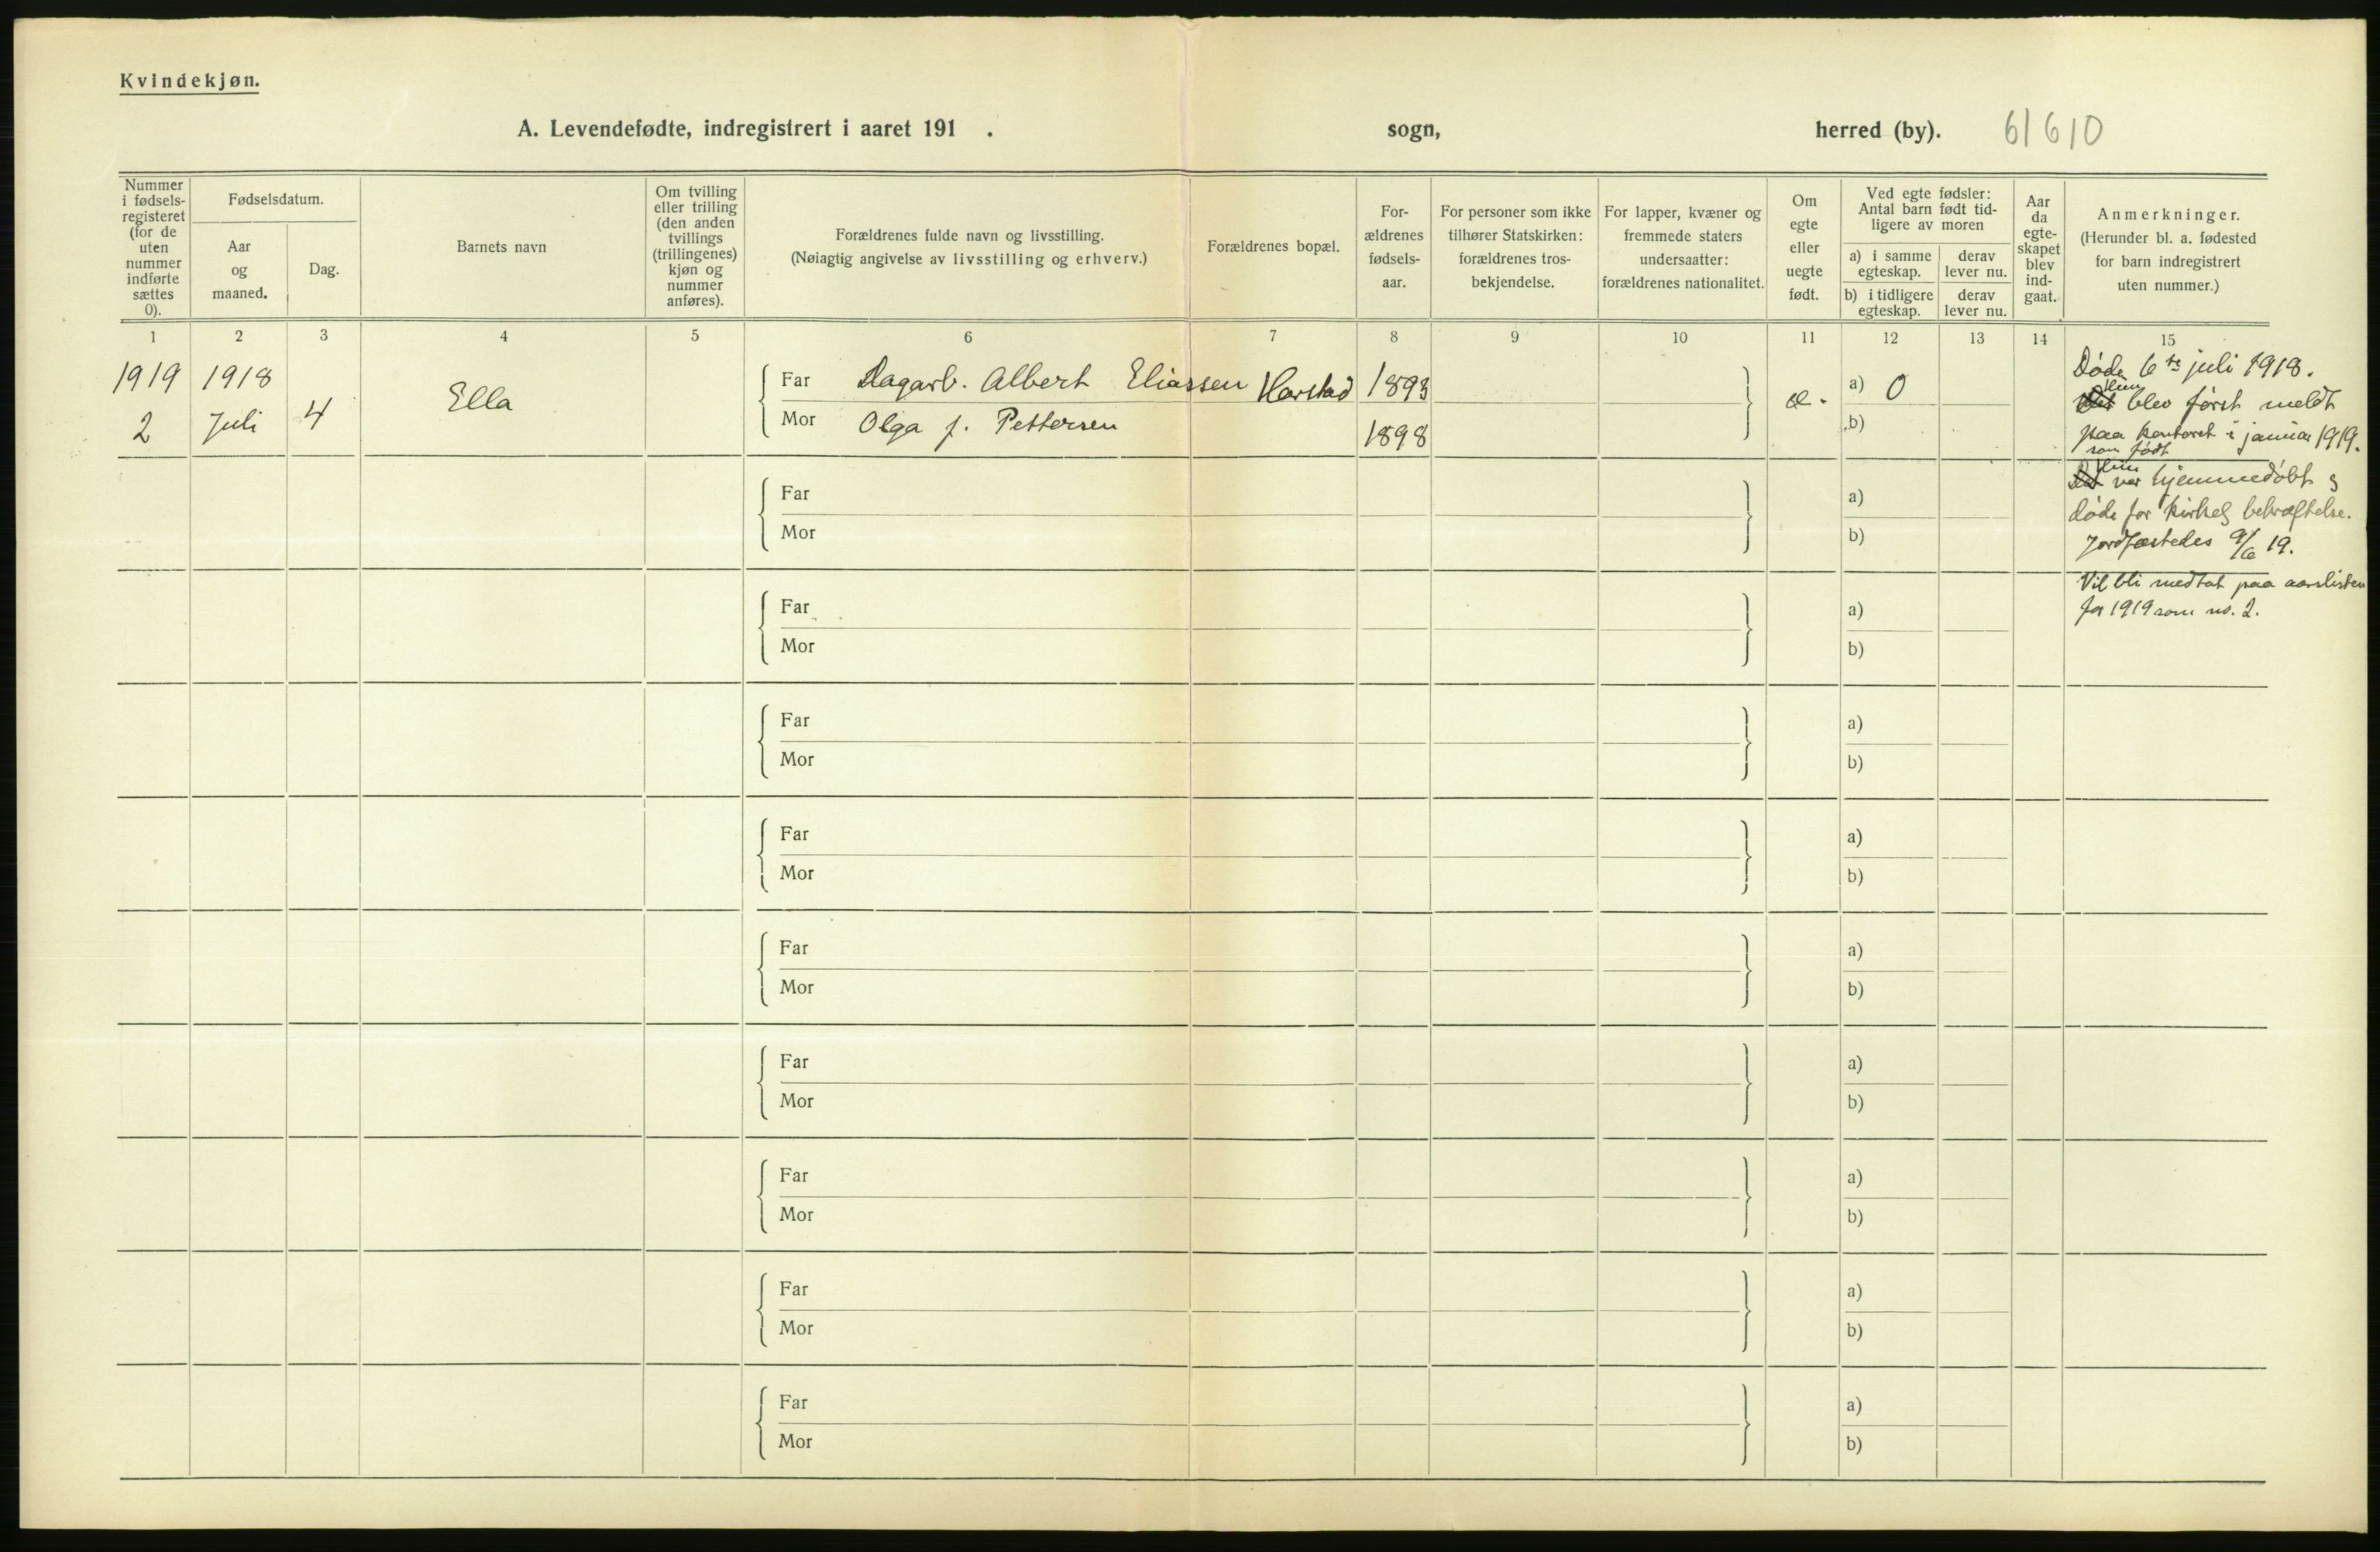 Kvindekjøn.
A. Levendefødte, indregistrert i aaret 191 . sogn, herred (by). 61610
Nummer
i fødsels-
registeret
(for de
uten
nummer
indførte
sættes
0).
Fødselsdatum.
Aar
og
maaned.
Dag.
Barnets navn
Om tvilling
eller trilling
(den anden
tvillings
(trillingenes)
kjøn og
nummer
anføres).
Forældrenes fulde navn og livsstilling.
(Nøiagtig angivelse av livsstilling og erhverv.)
Forældrenes bopæl.
For-
ældrenes
fødsels-
aar.
For personer som ikke
tilhører Statskirken:
forældrenes tros-
bekjendelse.
For lapper, kvæner og
fremmede staters
undersaatter:
forældrenes nationalitet.
Om
egte
eller
uegte
født.
Ved egte fødsler:
Antal barn født tid-
ligere av moren
a) i samme
egteskap.
derav
lever nu.
b) i tidligere
egteskap.
derav
lever nu.
Aar
da
egte-
skapet
blev
ind-
gaat.
Anmerkninger.
(Herunder bl. a. fødested
for barn indregistrert
uten nummer.)
1 2 3 4 5 6 7 8 9 10 11 12 13 14 15
1919 1918
2 Juli 4 Ella
Far Dagarb. Albert Eliassen Harstad 1893
Mor Olga f. Pettersen 1898
æ.
a) 0
b)
Døde 6te juli 1918.
Hun
Det blev først meldt
paa kontoret i januar 1919.
som født
Hun
Det var hjemmedøbt og
døde før kirkelig bekræftelse.
Jordfæstedes 9/6 19.
Vil bli medtat paa aarslisten
for 1919 som no. 2.
Far a)
Mor b)
Far a)
Mor b)
Far a)
Mor b)
Far a)
Mor b)
Far a)
Mor b)
Far a)
Mor b)
Far a)
Mor b)
Far a)
Mor b)
Far a)
Mor b)